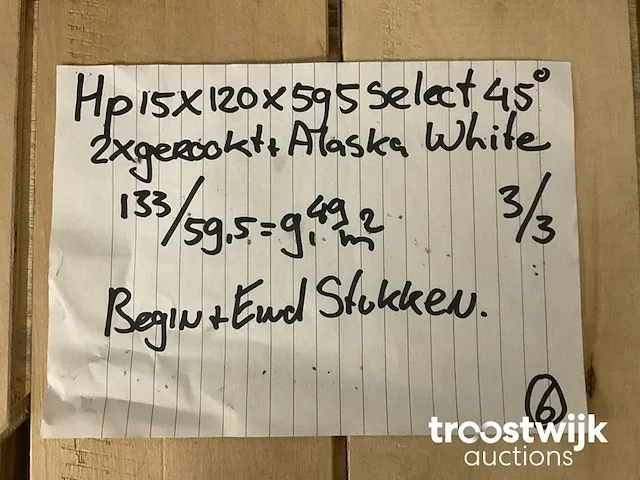 Hp 15x120x595 select 45°
2xgerookt+ Alaska White
133/59,5=9,49 m² 3/3
Begin + Eind Stukken.
6
troostwijk
auctions